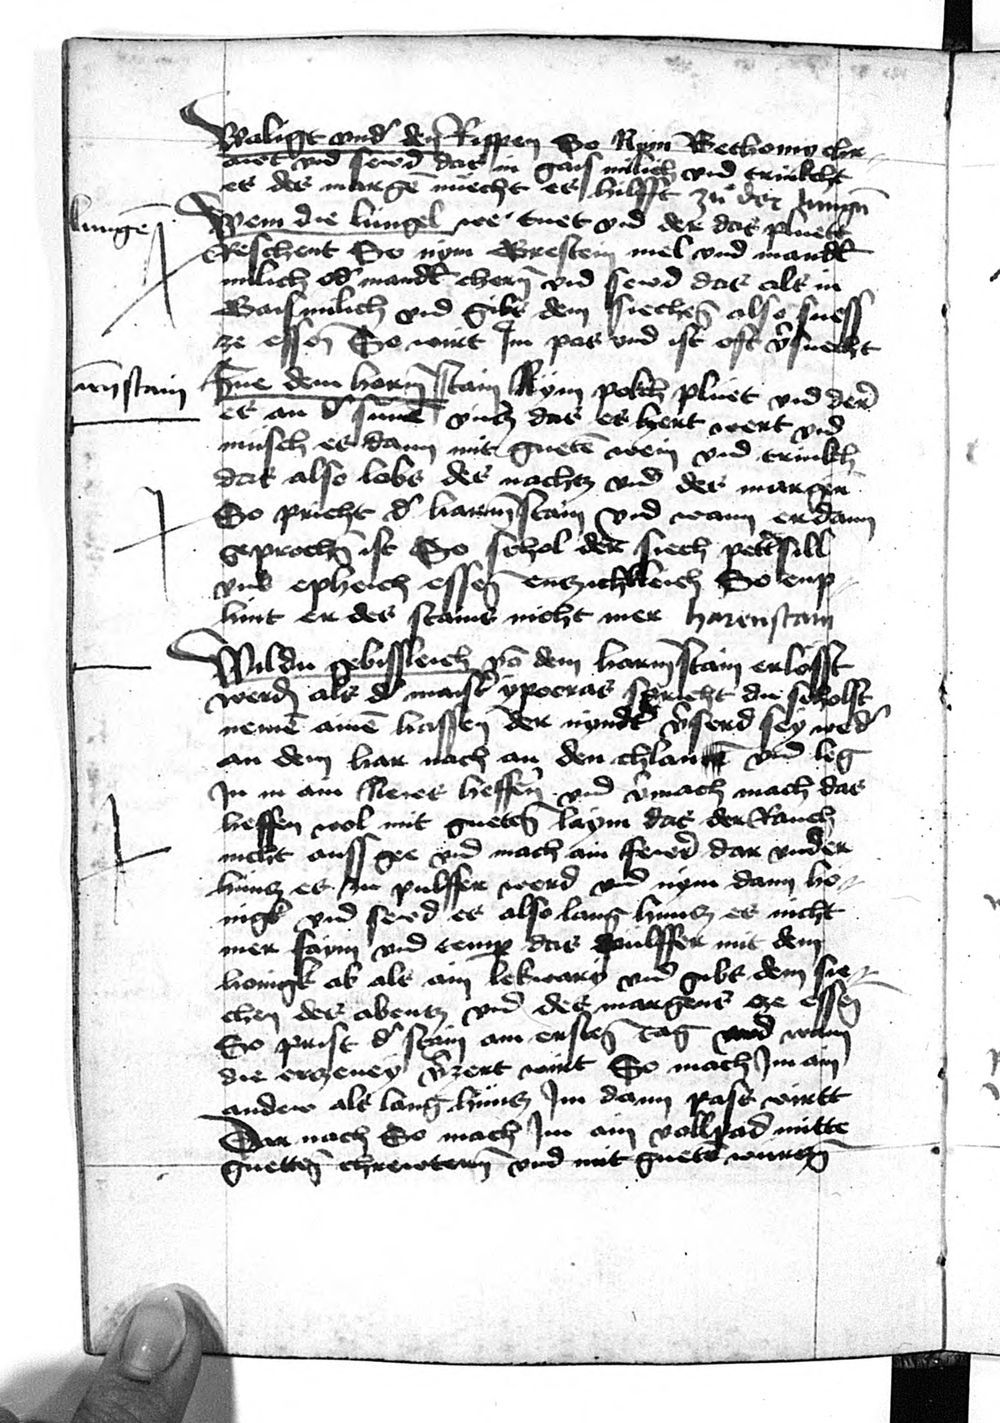 Waligt vnd' den Rippen So Nym Bethonig chr-
awt vnd sewd das in gais milich vnd trinkch
es des margē nüecht es hilfft zu der lungn̄
lungē
Wem die lungel we tuet vnd der das pluett
Reschent So nym Gersten mel vnd mandl
milich od' mandl chern̄ vnd sewd das als in
Gaismilich vnd gibs dem siechen̄ also suess
ze essen̄ So wirt Im pas vnd ist oft v'suecht
arn̄stain
Fue dem harn̄ stain Nym pokch pluet vnd der
es an d' sunnē vncz das es hert wert vnd
misch es dann mit guetē wein vnd trinkh
das also lobs des nachtz vnd des margen̄
So pricht d' harn̄stain vnd wann er dann
geprochn̄ ist So schol der siech petersill
vnd epheich essen̄ enczichleich So enp-
hint er des stains nicht mer harenstain
Wildu gebissleich vō dem harn̄stain erlosst
werdn̄ als d' maist' ypocras spricht du scholst
nemē ainē hassen der nyndt' v'serd sey wed'
an dem har nach an den chlawn̄ vnd leg
In in ain newes heffen̄ vnd v'mach mach das
heffen wol mit gueten̄ laym das der Rauch
nicht auss gee vnd mach ain fewr dar vnder
hincz es zu pulffer werd vnd nym dann ho-
nigk vnd sewd es also lang hincz es nicht
mer faym vnd temp' das pulffer mit dem
honigk ab als ain lekwary vnd gibs dem sie-
chen des abentz vnd des margens cze essen̄
So prist d' stain am ersten̄ tag vnd wann
die erczeney v'zert wirt So mach Im ain
andew als lang hincz Im dann pass wirtt
Dar nach So mach Im ain vollpad mitte
guetten̄ chrewtern̄ vnd mit guetē wurczn̄